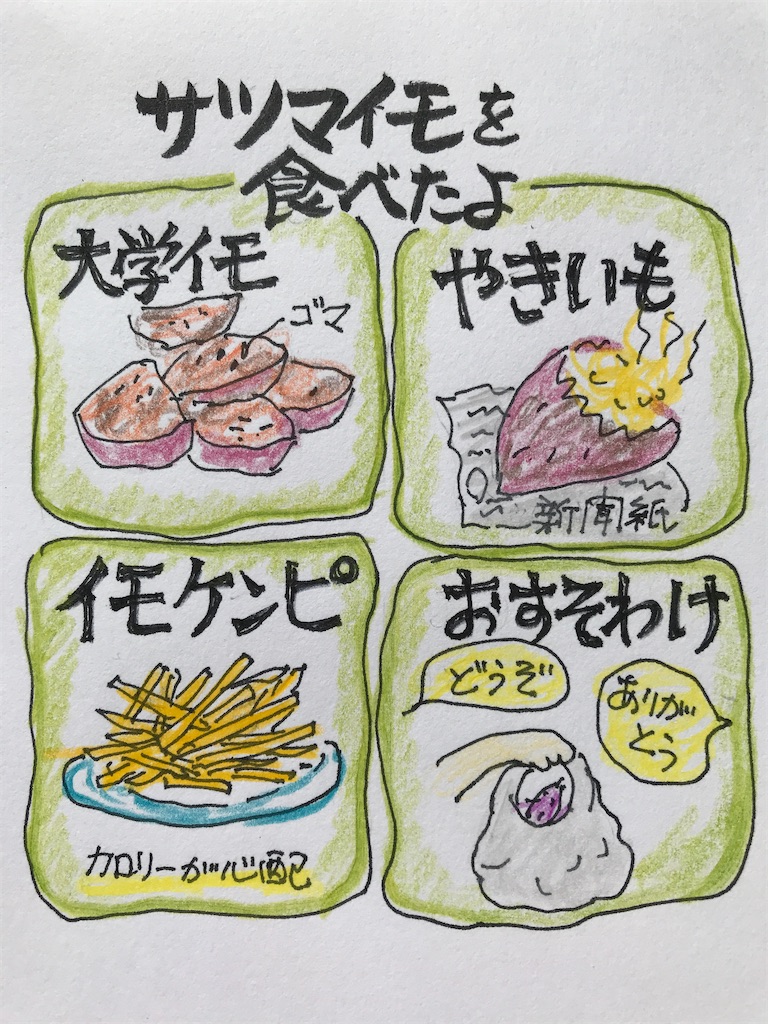 サツマイモを
食べたよ
大学イモ
ゴマ
やきいも
新聞紙
イモケンピ
カロリーが心配
おすそわけ
どうぞ
ありが
とう